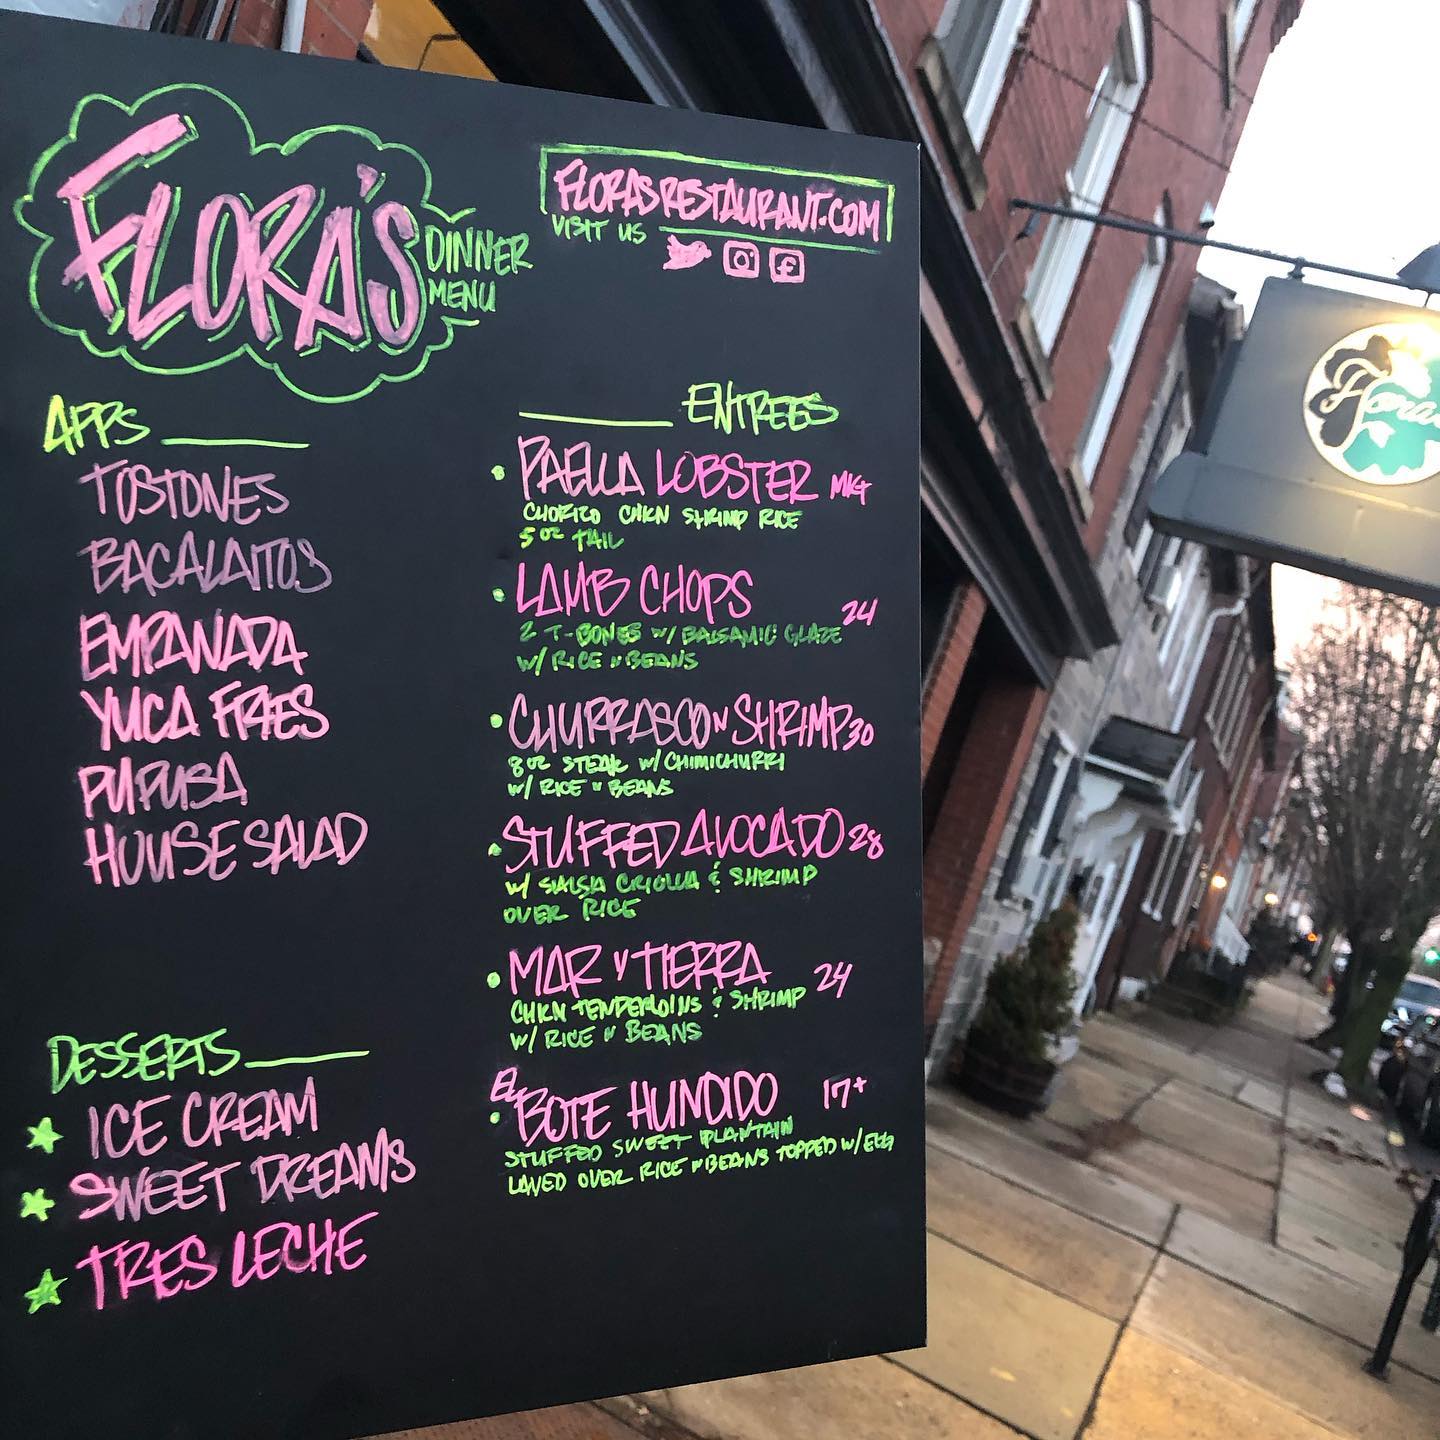 FLORA'S
DINNER
MENU
FLORASRESTAURANT.COM
VISIT US
APPS
TOSTONES
BACALAITOS
EMPANADA
YUCA FRIES
PUPUSA
HOUSE SALAD
DESSERTS
ICE CREAM
SWEET DREAMS
TRES LECHE
ENTREES
PAELLA LOBSTER MKT
CHORIZO CHKN SHRIMP RICE
5 OZ TAIL
LAMB CHOPS 24
2 T-BONES W/ BALSAMIC GLAZE
W/ RICE N BEANS
CHURRASCO N SHRIMP 30
8 OZ STEAK W/ CHIMICHURRI
W/ RICE N BEANS
STUFFED AVOCADO 28
W/ SALSA CRIOLLA & SHRIMP
OVER RICE
MAR Y TIERRA 24
CHKN TENDERLOINS & SHRIMP
W/ RICE N BEANS
EL BOTE HUNDIDO 17+
STUFFED SWEET PLANTAIN
LAYED OVER RICE N BEANS TOPPED W/ EGG